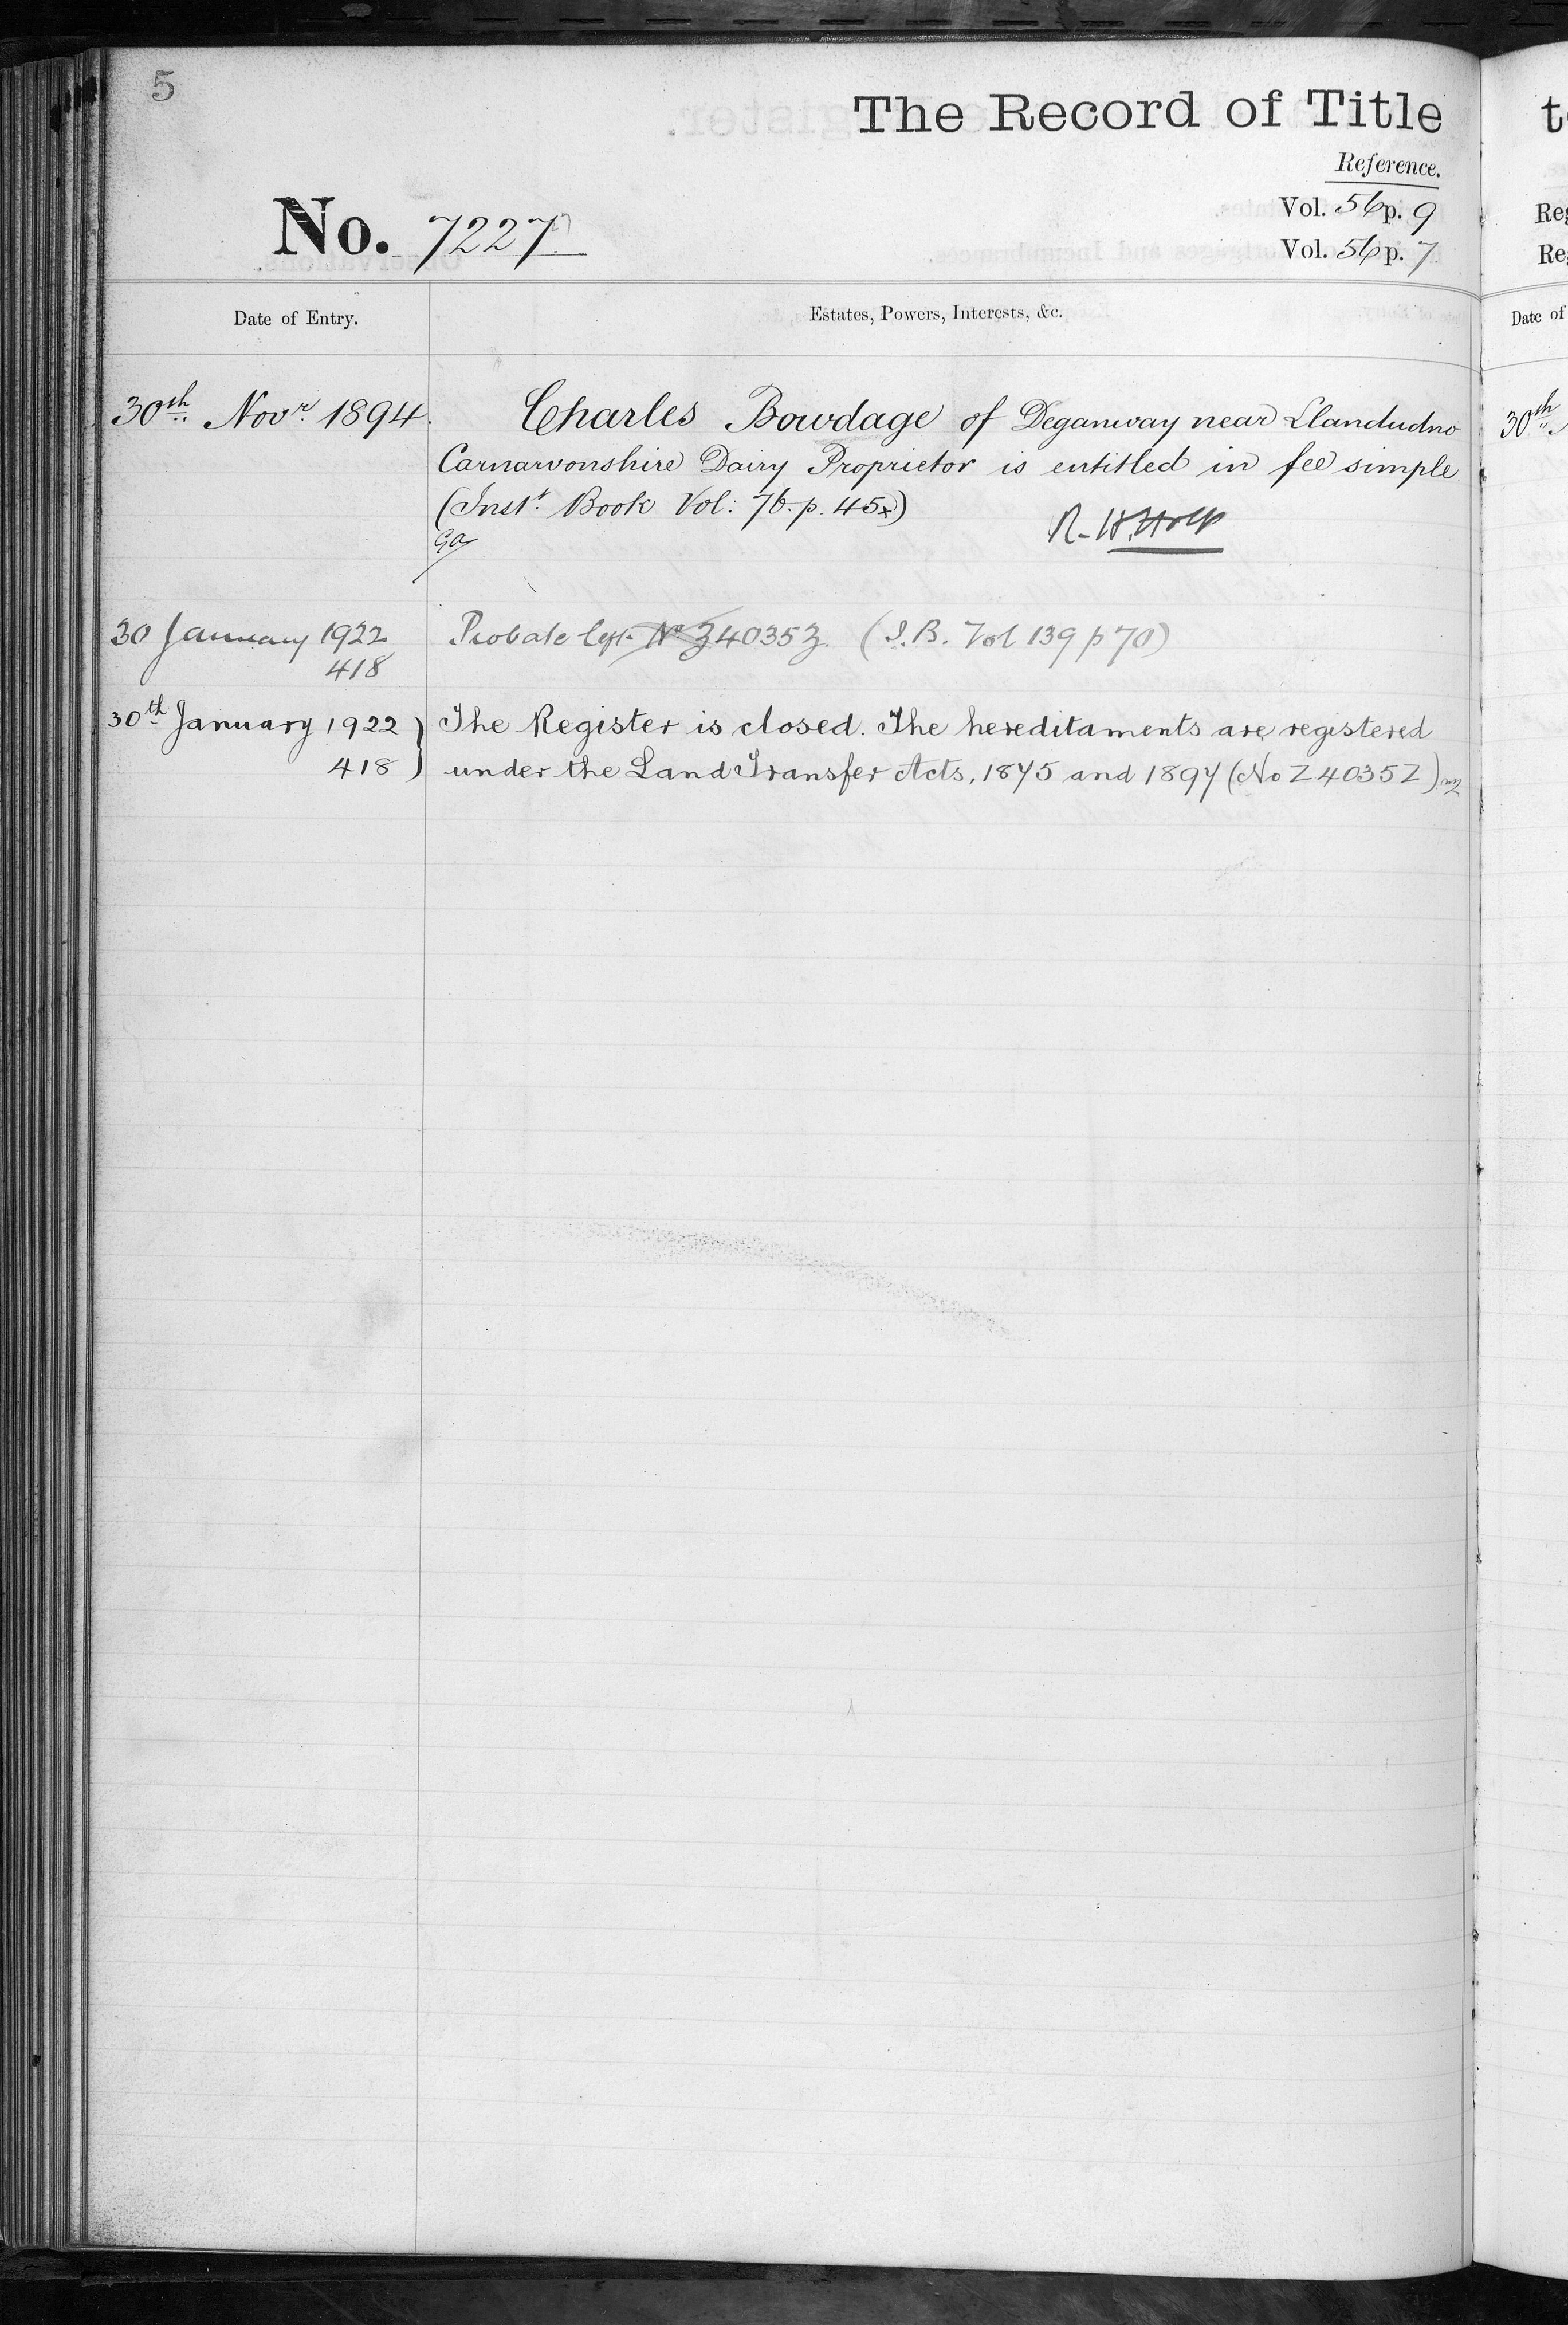 5
The Record of Title
Reference.
No. 7227.
Vol. 56 p. 9
Vol. 56 p. 7
Date of Entry.
Estates, Powers, Interests, &c.
30th Novr. 1894.
Charles Bowdage of Deganway near Llandudno
Carnarvonshire Dairy Proprietor is entitled in fee simple.
(Inst. Book Vol: 76. p. 45)
R. H. Holt
30 January 1922
418
Probate No Z4035Z. (I.B. Vol 139 p 70)
30th January 1922
418
The Register is closed. The hereditaments are registered
under the Land Transfer Acts, 1875 and 1897 (No Z4035Z)
t
Reg
Re
Date of
30th